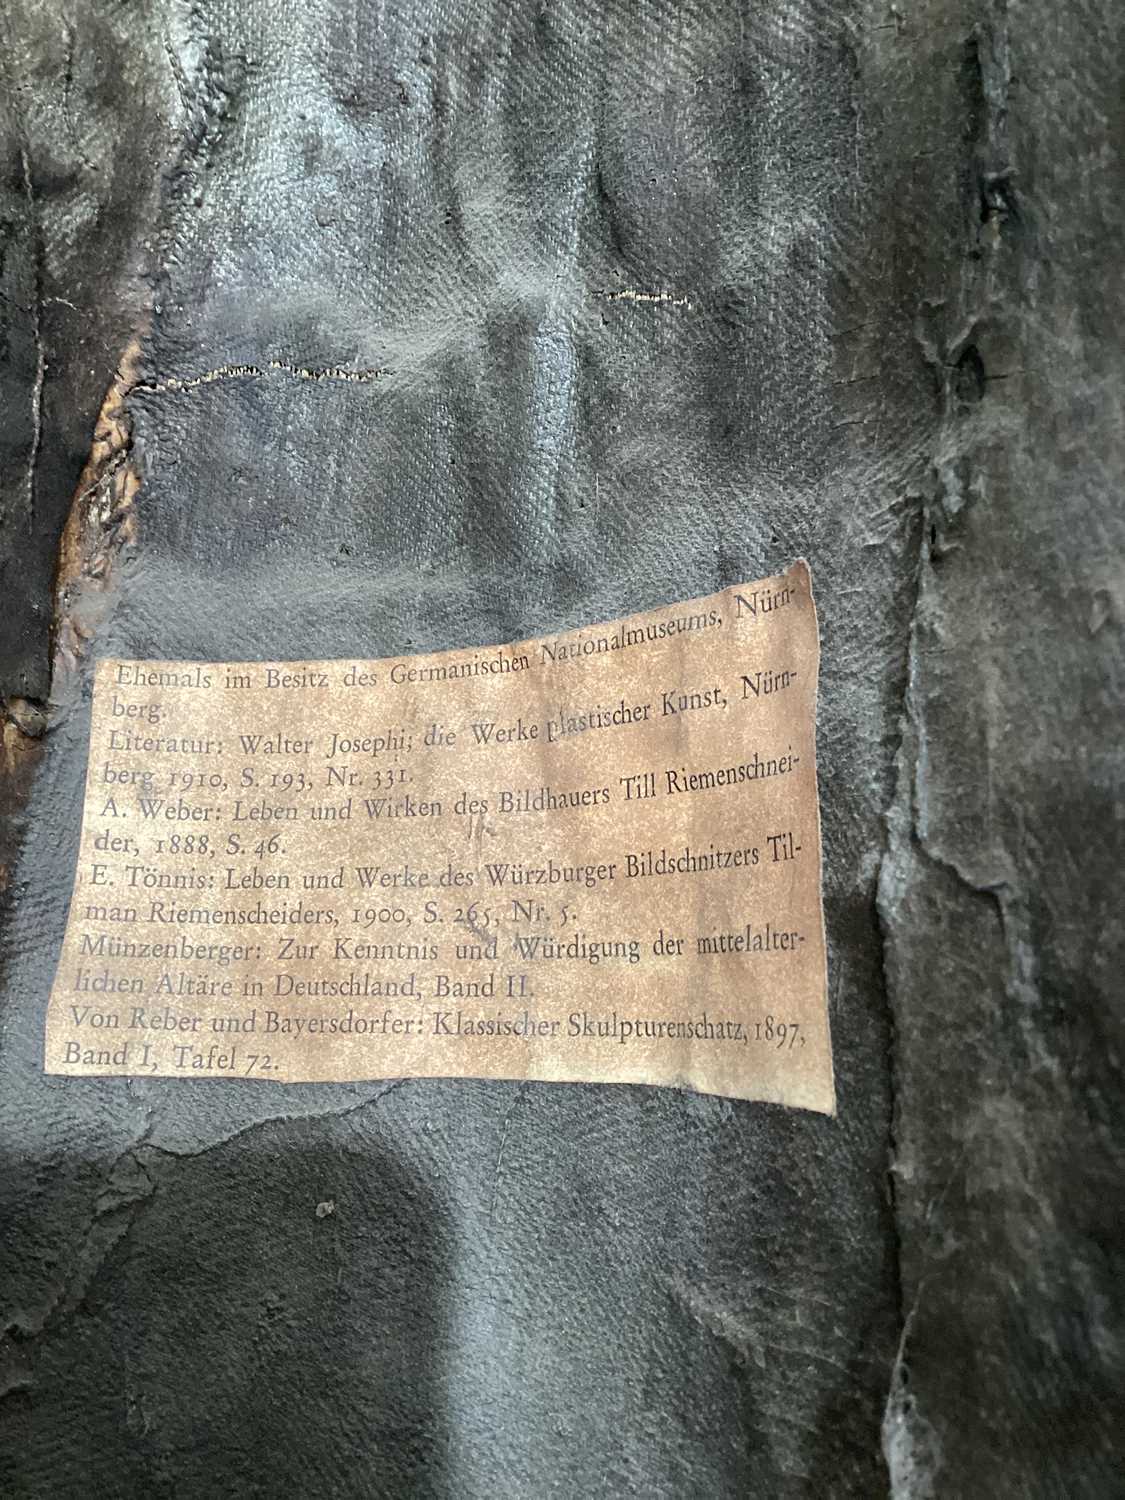 Ehemals im Besitz des Germanischen Nationalmuseums, Nürn-
berg.
Literatur: Walter Josephi; die Werke plastischer Kunst, Nürn-
berg 1910, S. 193, Nr. 331.
A. Weber: Leben und Wirken des Bildhauers Till Riemenschnei-
der, 1888, S. 46.
E. Tönnis: Leben und Werke des Würzburger Bildschnitzers Til-
man Riemenscheiders, 1900, S. 265, Nr. 5.
Münzenberger: Zur Kenntnis und Würdigung der mittelalter-
lichen Altäre in Deutschland, Band II.
Von Reber und Bayersdorfer: Klassischer Skulpturenschatz, 1897,
Band I, Tafel 72.